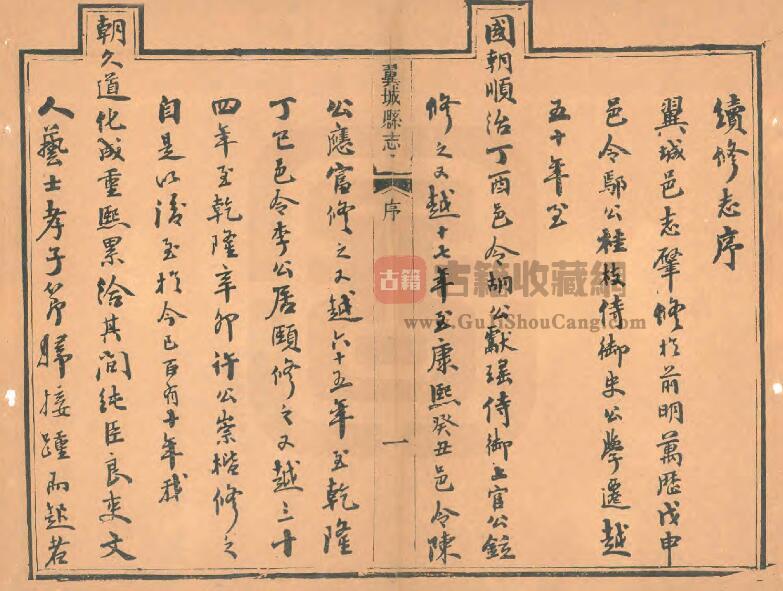 續修志序
翼城邑志肇修於前明萬歷戊申
邑令鄢公桂枝侍御史公學遷越
五十年至
國朝順治丁酉邑令胡公獻瑶侍御上官公鉝
修之又越十七年至康熙癸丑邑令陳
翼城縣志
序
一
公應富修之又越六十五年至乾隆
丁巳邑令李公居頤修之又越三十
四年至乾隆辛卯許公崇楷修之
自是以後至於今已百有十年我
朝久道化成重熙累洽其間純臣良吏文
人藝士孝子節婦接踵而起若
古籍
古籍收藏網
www.GuJiShouCang.com